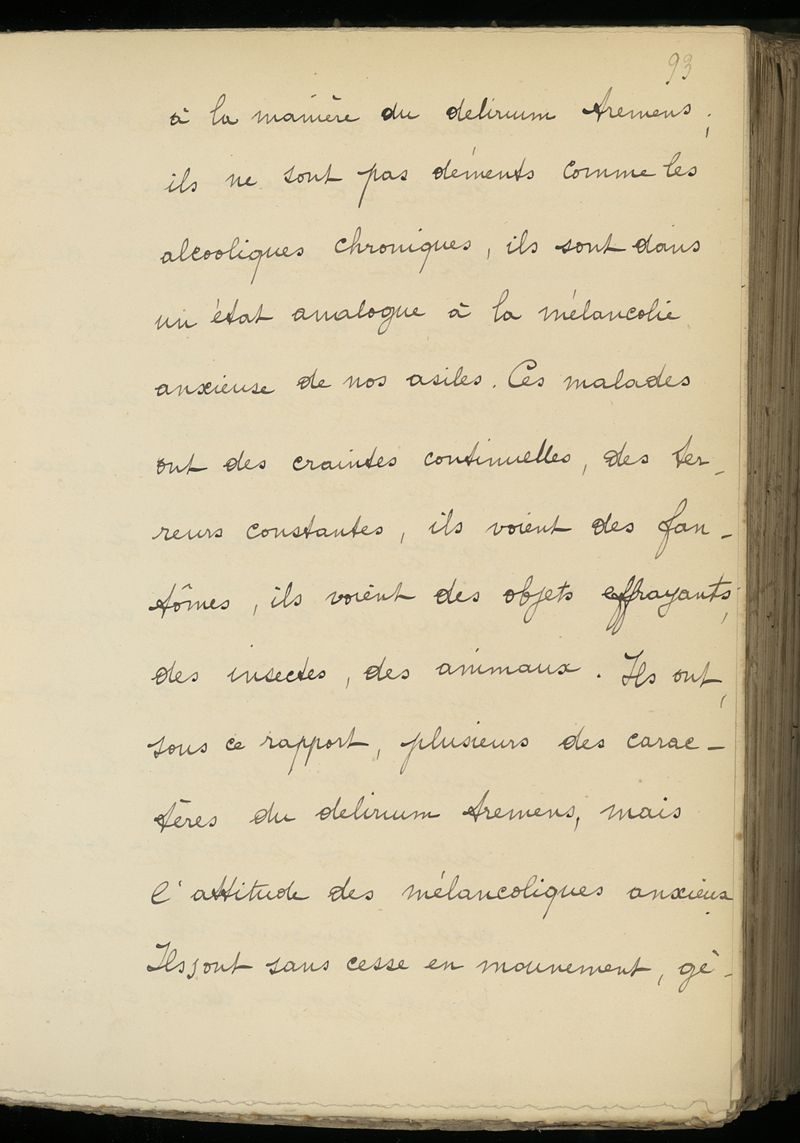 93
à la manière du delirium tremens ;
ils ne sont pas déments comme les
alcooliques chroniques, ils sont dans
un état analogue à la mélancolie
anxieuse de nos asiles. Ces malades
ont des craintes continuelles, des ter-
reurs constantes, ils voient des fan-
tômes, ils voient des objets effrayants,
des insectes, des animaux. Ils ont,
sous ce rapport, plusieurs des carac-
tères du delirium tremens, mais
l'attitude des mélancoliques anxieux.
Ils sont sans cesse en mouvement, gé-